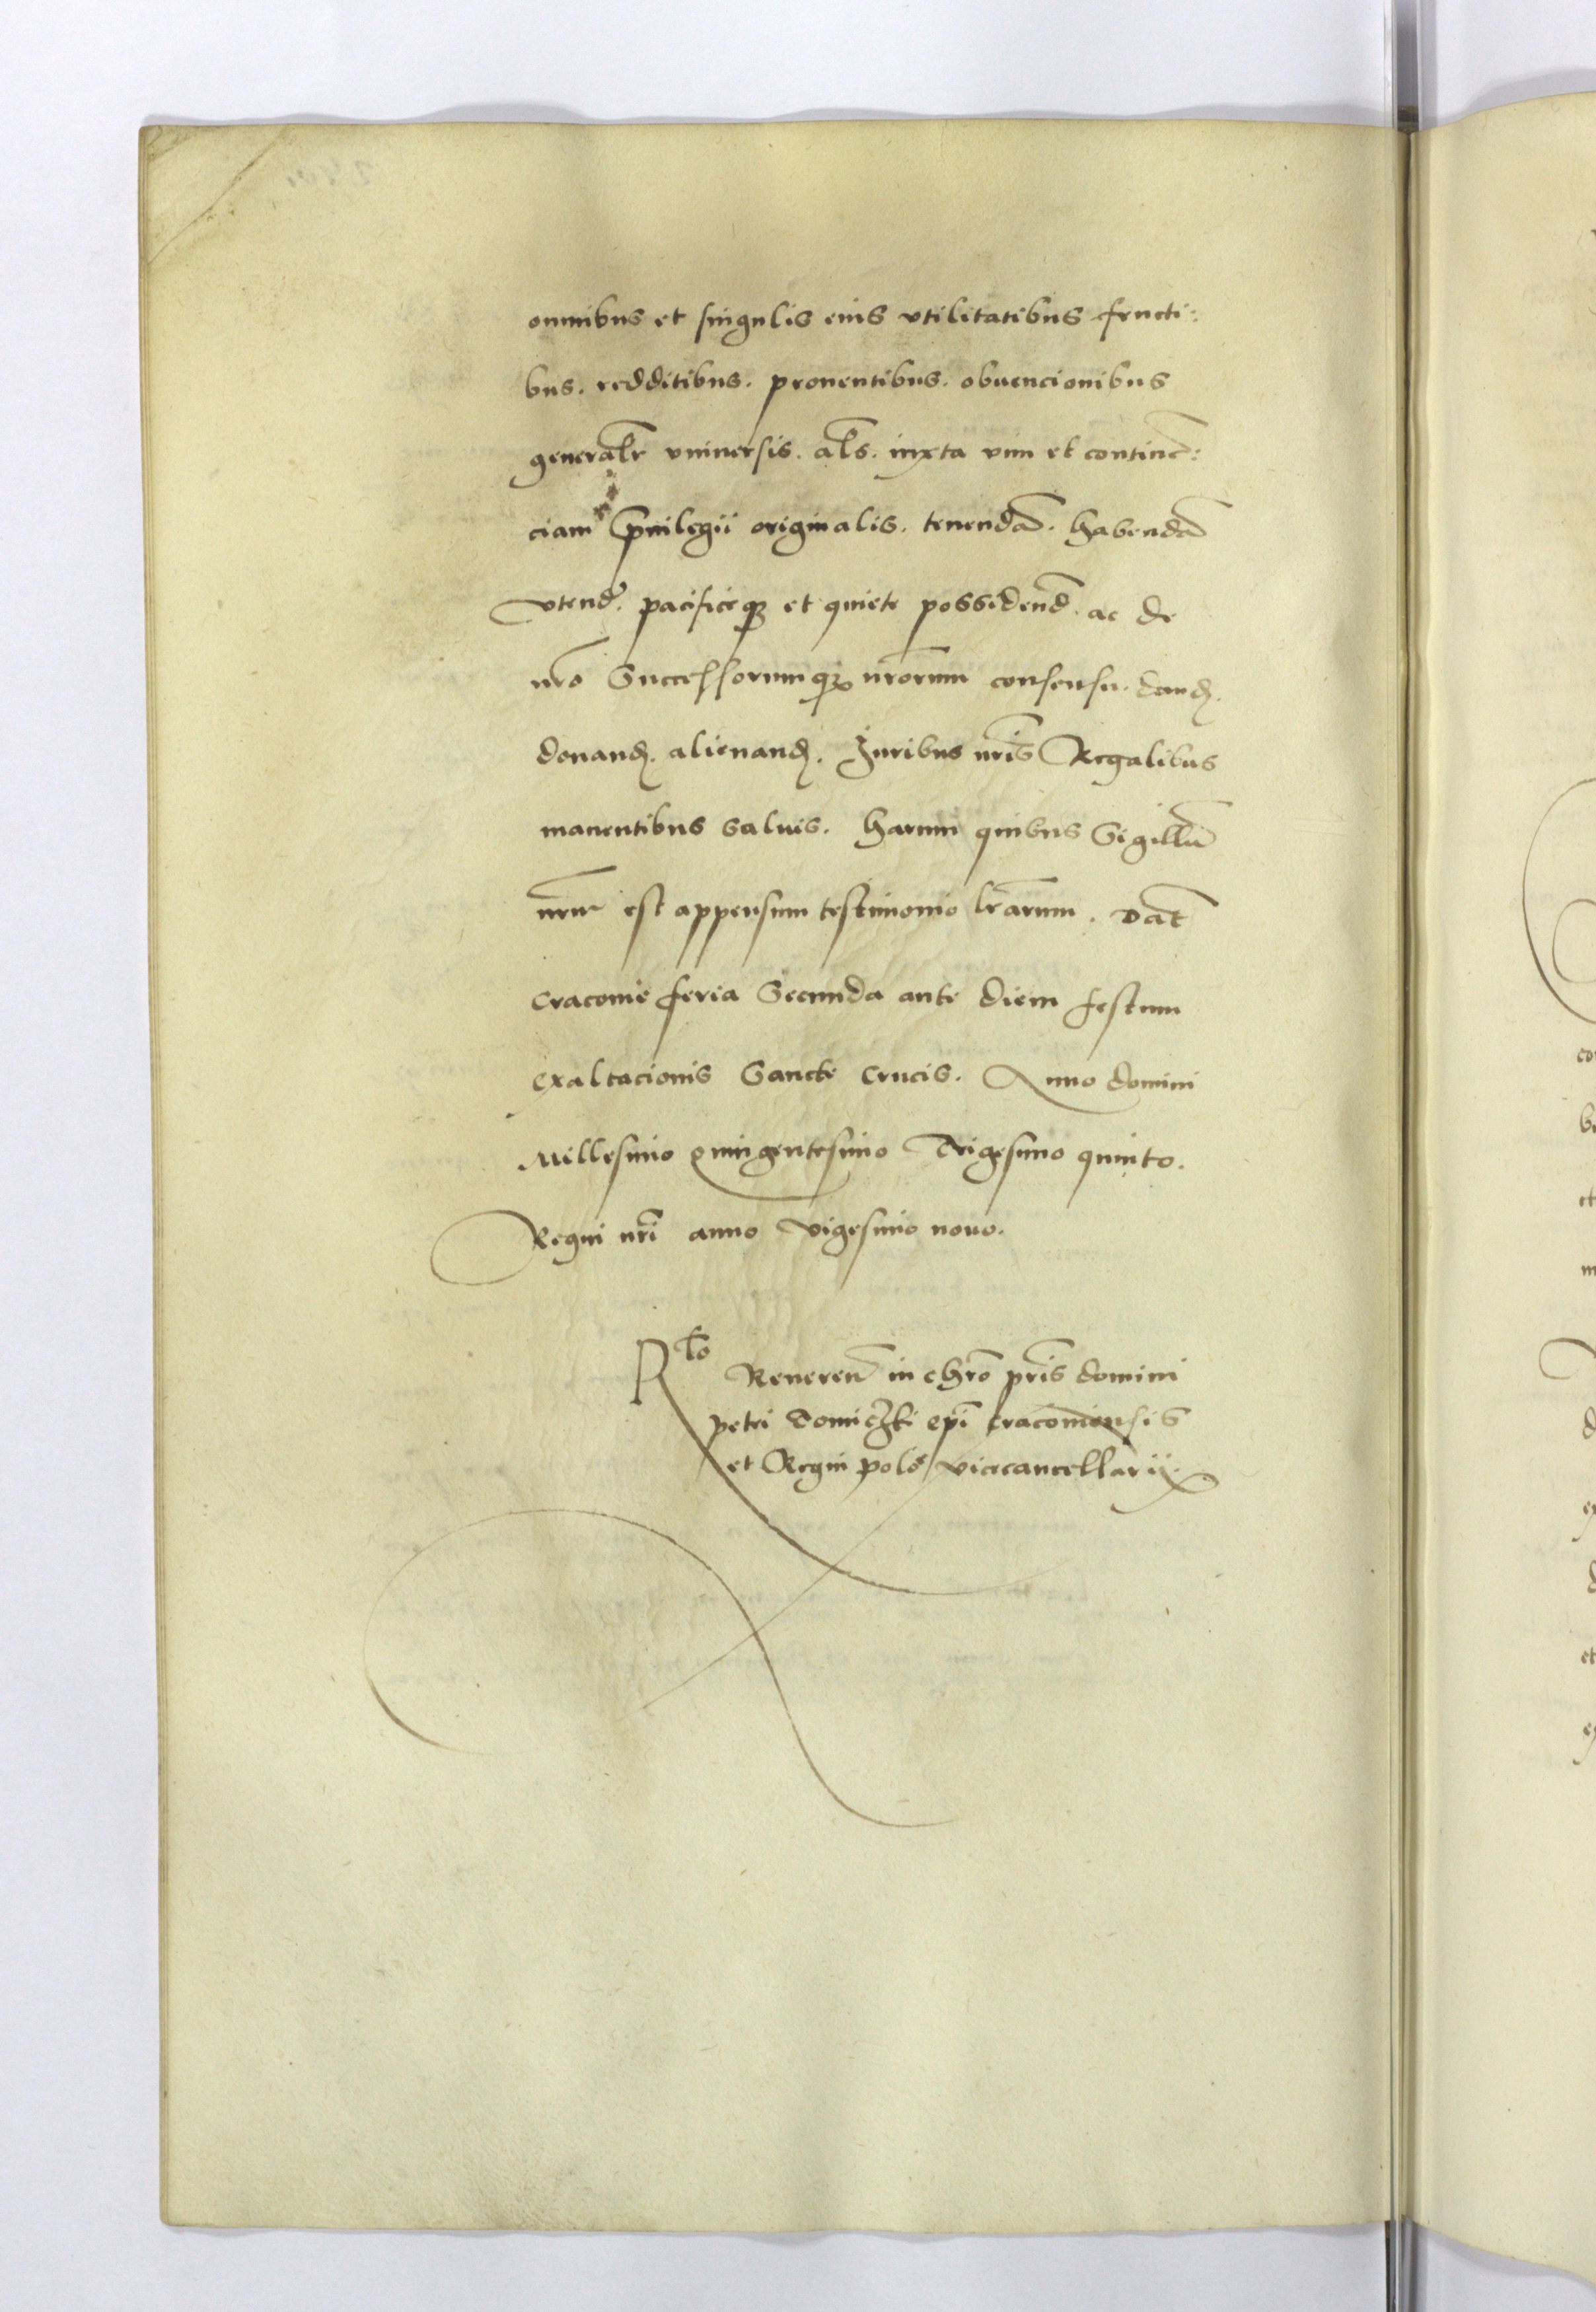 omnibus et singulis eius vtilitatibus fructi:
bus. redditibus. prouentibus. obuencionibus
generalr vniuersis. als. iuxta vim et continẽ:
ciam priuilegii originalis. tenendã. habendã
vtend. pacificeqz et quiete possidend. ac de
nrõ Successorumqz nrõrum consensu. dand.
donand. alienand. Iuribus nrĩs Regalibus
manentibus saluis. Harum quibus Sigillũ
nrm̃ est appensum testimonio lrãrum. Dat̃
Cracouie feria Secunda ante diem festum
Exaltacionis Sancte Crucis. Anno domini
Millesimo Quingentesimo Trigesimo quinto.
Regni nrĩ anno vigesimo nono.
Rlo Reueren̄ in chrõ prĩs domini
petri Tomiczki epĩ Cracouiensis
et Regni polo vicecancellarii.